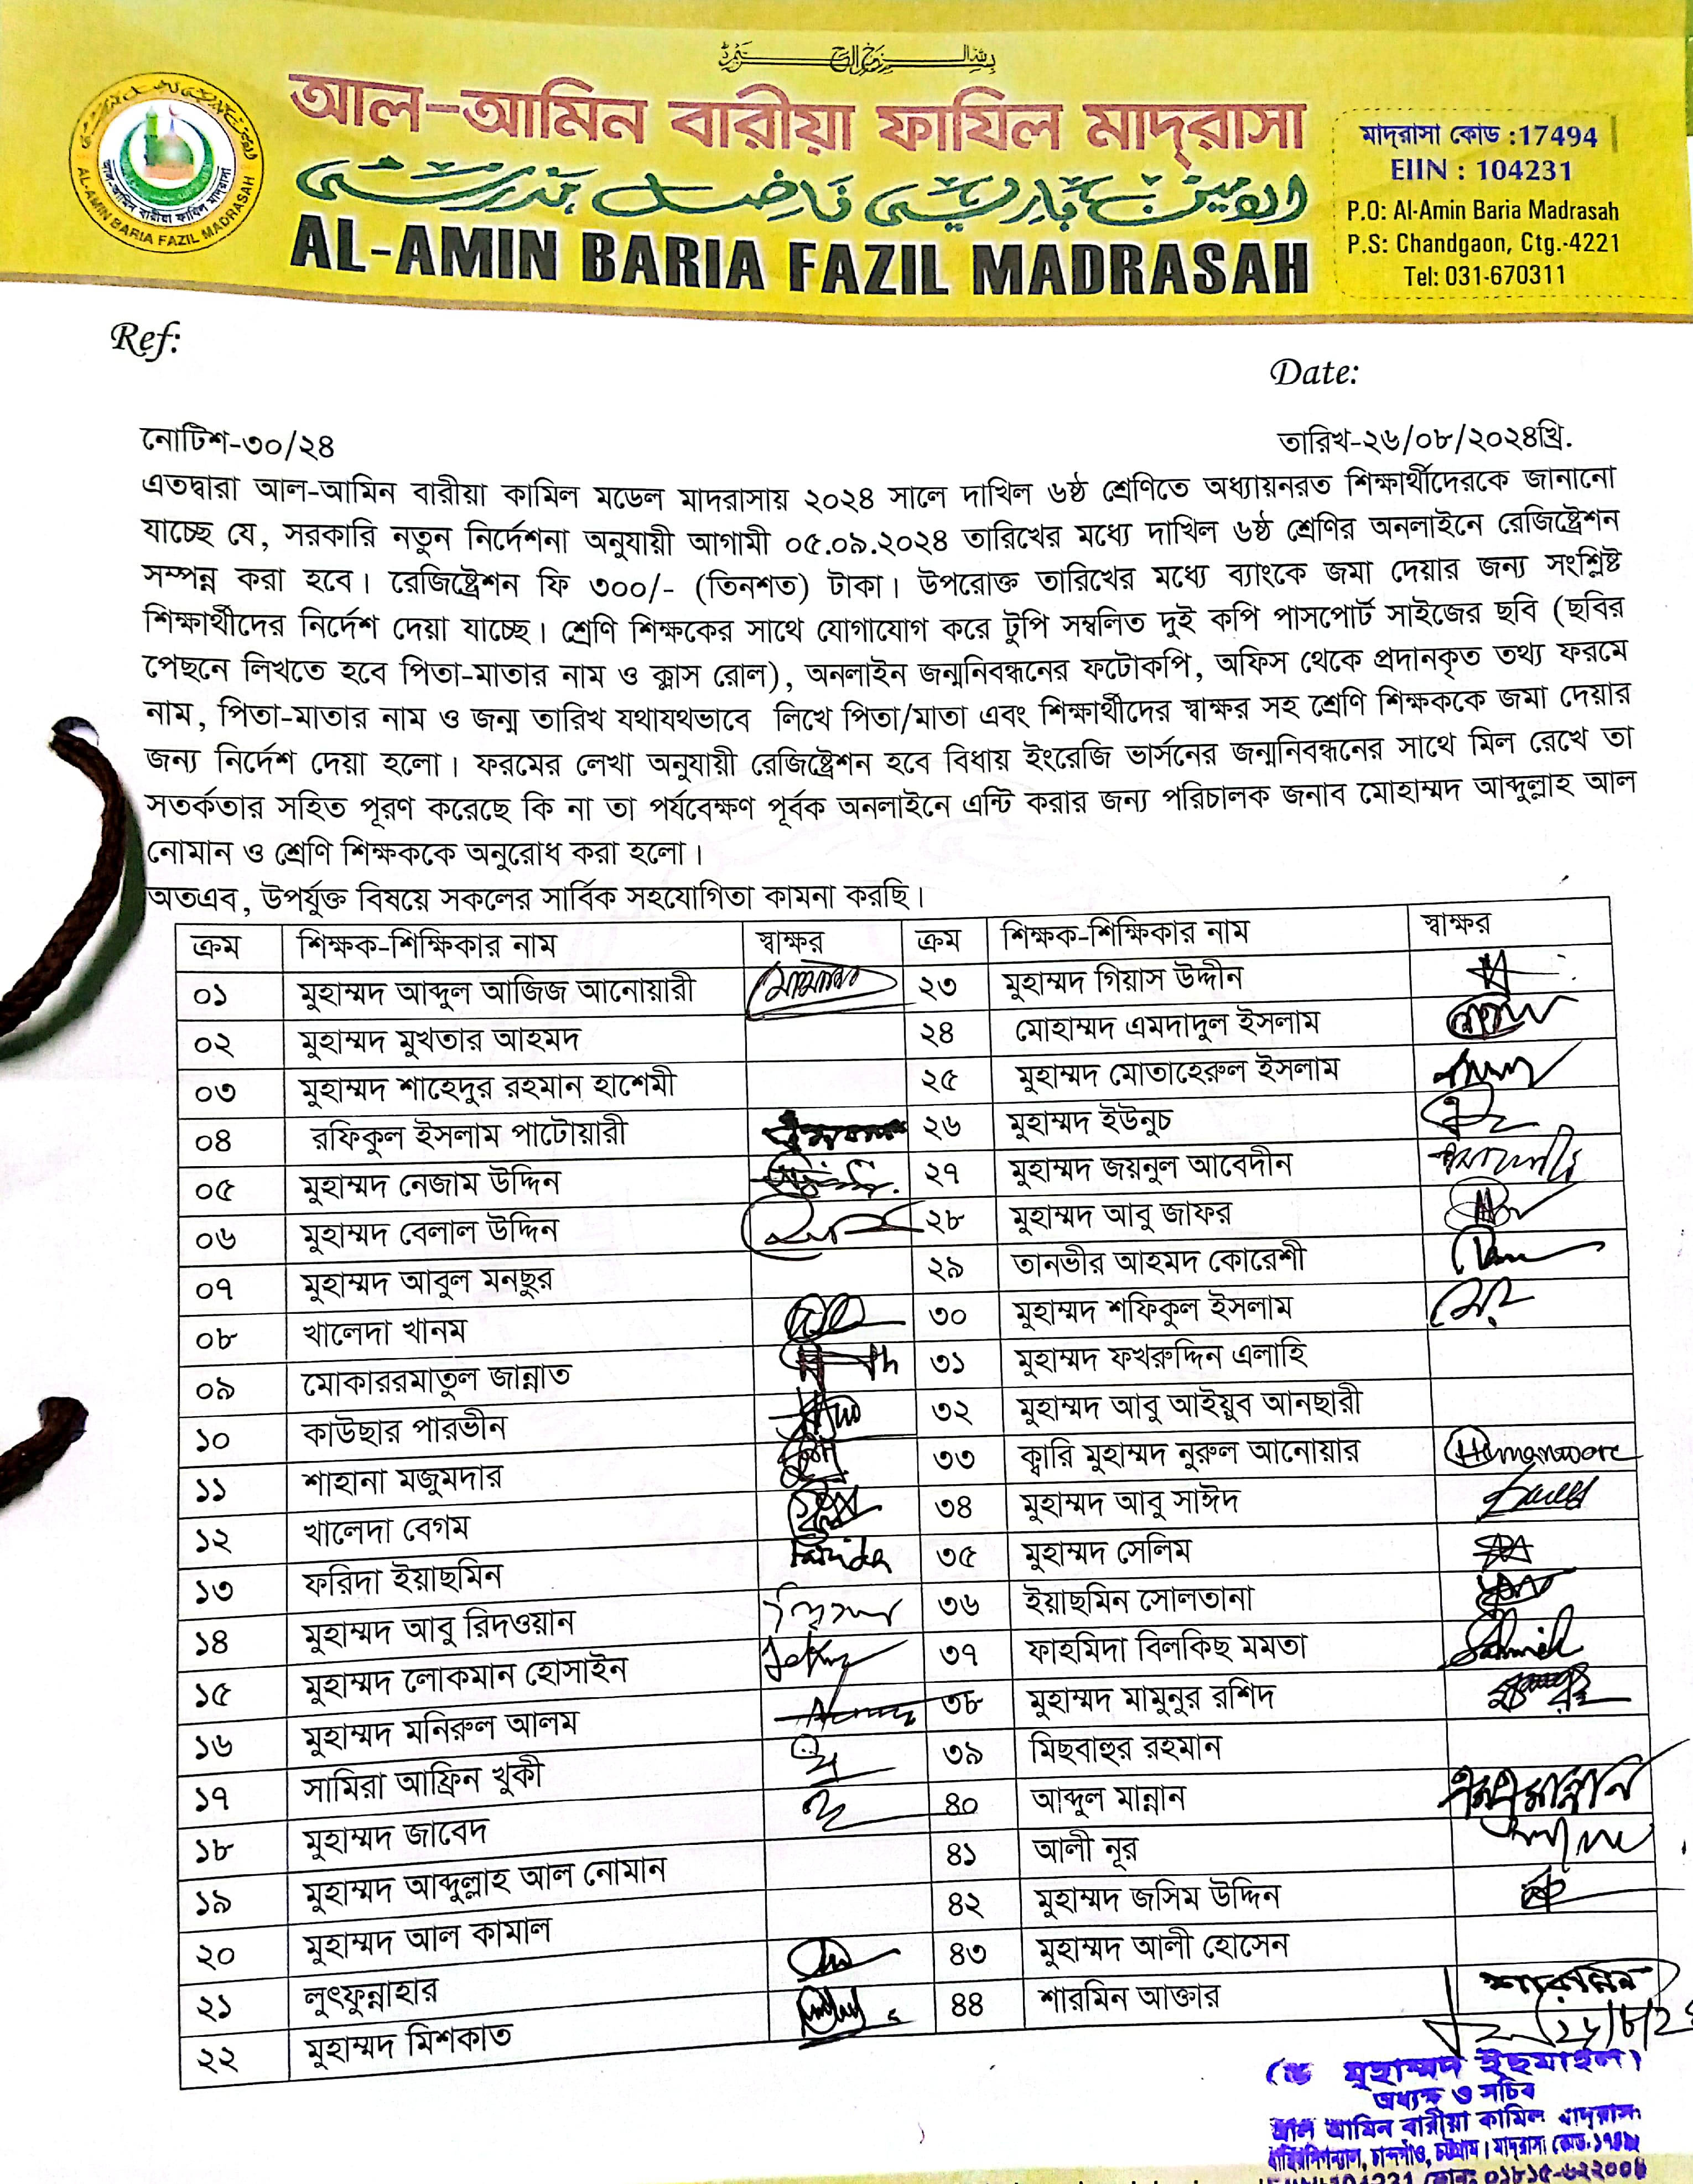 আল-আমিন বারীয়া ফাযিল মাদ্‌রাসা
AL-AMIN BARIA FAZIL MADRASAH
আল-আমিন বারীয়া ফাযিল মাদ্‌রাসা
AL-AMIN BARIA FAZIL MADRASAH
মাদ্‌রাসা কোড :17494
EIIN : 104231
P.O: Al-Amin Baria Madrasah
P.S: Chandgaon, Ctg.-4221
Tel: 031-670311
Ref:
Date:
নোটিশ-৩০/২৪ তারিখ-২৬/০৮/২০২৪খ্রি.
এতদ্বারা আল-আমিন বারীয়া কামিল মডেল মাদরাসায় ২০২৪ সালে দাখিল ৬ষ্ঠ শ্রেণিতে অধ্যায়নরত শিক্ষার্থীদেরকে জানানো
যাচ্ছে যে, সরকারি নতুন নির্দেশনা অনুযায়ী আগামী ০৫.০৯.২০২৪ তারিখের মধ্যে দাখিল ৬ষ্ঠ শ্রেণির অনলাইনে রেজিষ্ট্রেশন
সম্পন্ন করা হবে। রেজিষ্ট্রেশন ফি ৩০০/- (তিনশত) টাকা। উপরোক্ত তারিখের মধ্যে ব্যাংকে জমা দেয়ার জন্য সংশ্লিষ্ট
শিক্ষার্থীদের নির্দেশ দেয়া যাচ্ছে। শ্রেণি শিক্ষকের সাথে যোগাযোগ করে টুপি সম্বলিত দুই কপি পাসপোর্ট সাইজের ছবি (ছবির
পেছনে লিখতে হবে পিতা-মাতার নাম ও ক্লাস রোল), অনলাইন জন্মনিবন্ধনের ফটোকপি, অফিস থেকে প্রদানকৃত তথ্য ফরমে
নাম, পিতা-মাতার নাম ও জন্ম তারিখ যথাযথভাবে লিখে পিতা/মাতা এবং শিক্ষার্থীদের স্বাক্ষর সহ শ্রেণি শিক্ষককে জমা দেয়ার
জন্য নির্দেশ দেয়া হলো। ফরমের লেখা অনুযায়ী রেজিষ্ট্রেশন হবে বিধায় ইংরেজি ভার্সনের জন্মনিবন্ধনের সাথে মিল রেখে তা
সতর্কতার সহিত পূরণ করেছে কি না তা পর্যবেক্ষণ পূর্বক অনলাইনে এন্টি করার জন্য পরিচালক জনাব মোহাম্মদ আব্দুল্লাহ আল
নোমান ও শ্রেণি শিক্ষককে অনুরোধ করা হলো।
অতএব, উপর্যুক্ত বিষয়ে সকলের সার্বিক সহযোগিতা কামনা করছি।
ক্রম শিক্ষক-শিক্ষিকার নাম স্বাক্ষর ক্রম শিক্ষক-শিক্ষিকার নাম স্বাক্ষর
০১ মুহাম্মদ আব্দুল আজিজ আনোয়ারী ২৩ মুহাম্মদ গিয়াস উদ্দীন
০২ মুহাম্মদ মুখতার আহমদ ২৪ মোহাম্মদ এমদাদুল ইসলাম
০৩ মুহাম্মদ শাহেদুর রহমান হাশেমী ২৫ মুহাম্মদ মোতাহেরুল ইসলাম
০৪ রফিকুল ইসলাম পাটোয়ারী ২৬ মুহাম্মদ ইউনুচ
০৫ মুহাম্মদ নেজাম উদ্দিন ২৭ মুহাম্মদ জয়নুল আবেদীন
০৬ মুহাম্মদ বেলাল উদ্দিন ২৮ মুহাম্মদ আবু জাফর
০৭ মুহাম্মদ আবুল মনছুর ২৯ তানভীর আহমদ কোরেশী
০৮ খালেদা খানম ৩০ মুহাম্মদ শফিকুল ইসলাম
০৯ মোকাররমাতুল জান্নাত ৩১ মুহাম্মদ ফখরুদ্দিন এলাহি
১০ কাউছার পারভীন ৩২ মুহাম্মদ আবু আইয়ুব আনছারী
১১ শাহানা মজুমদার ৩৩ ক্বারি মুহাম্মদ নুরুল আনোয়ার
১২ খালেদা বেগম ৩৪ মুহাম্মদ আবু সাঈদ
১৩ ফরিদা ইয়াছমিন Farida ৩৫ মুহাম্মদ সেলিম
১৪ মুহাম্মদ আবু রিদওয়ান ৩৬ ইয়াছমিন সোলতানা
১৫ মুহাম্মদ লোকমান হোসাইন ৩৭ ফাহমিদা বিলকিছ মমতা
১৬ মুহাম্মদ মনিরুল আলম ৩৮ মুহাম্মদ মামুনুর রশিদ
১৭ সামিরা আফ্রিন খুকী ৩৯ মিছবাহুর রহমান
১৮ মুহাম্মদ জাবেদ ৪০ আব্দুল মান্নান
১৯ মুহাম্মদ আব্দুল্লাহ আল নোমান ৪১ আলী নূর
২০ মুহাম্মদ আল কামাল ৪২ মুহাম্মদ জসিম উদ্দিন
২১ লুৎফুন্নাহার ৪৩ মুহাম্মদ আলী হোসেন
২২ মুহাম্মদ মিশকাত ৪৪ শারমিন আক্তার শারমিন
মুহাম্মদ ইছমাইল)
অধ্যক্ষ ও সচিব
আল আমিন বারীয়া কামিল মাদ্‌রাসা
চান্দগাঁও, চট্টগ্রাম। মাদ্‌রাসা কোড-